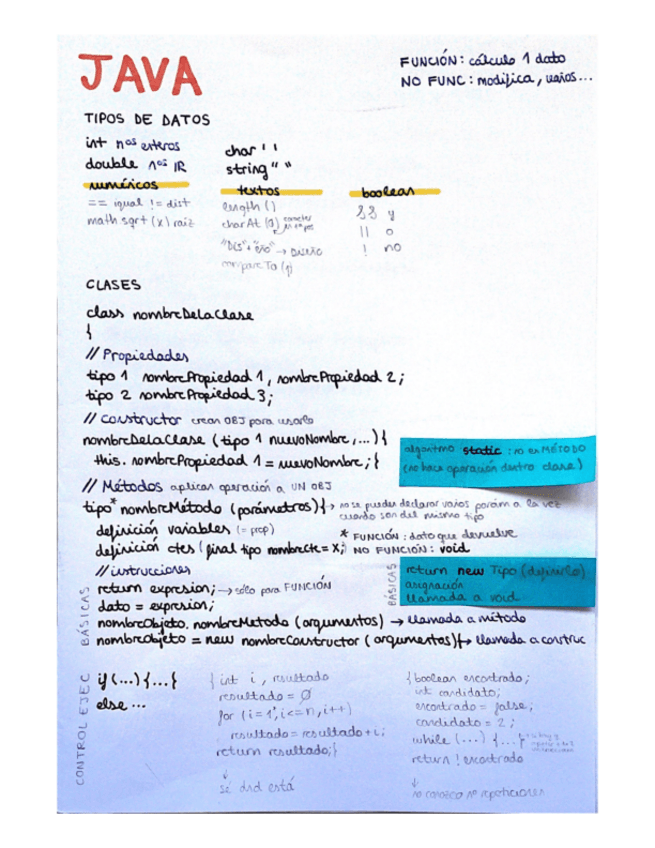 JAVA
FUNCIÓN: cálculo 1 dato
NO FUNC: modifica, varios...
TIPOS DE DATOS
int nos enteros
double nos IR
numéricos
== igual != dist
math.sqrt(x) raiz
char ' '
string " "
textos
length()
charAt()
"DIS"+"EÑO" → DISEÑO
compareTo(q)
boolean
&& y
|| o
! no
CLASES
class nombreDeLaClase
{
// Propiedades
tipo 1 nombrePropiedad 1, nombrePropiedad 2;
tipo 2 nombrePropiedad 3;
// Constructor crean OBJ para usarlo
nombreDeLaClase (tipo 1 nuevoNombre,...){
this.nombrePropiedad 1 = nuevoNombre;}
algoritmo static: no en MÉTODO
(no hace operación dentro clase)
// Métodos aplican operación a UN OBJ
tipo* nombreMétodo (parámetros){ → no se pueden declarar varios parám a la vez
cuando son del mismo tipo
definición variables (= prop)
* FUNCIÓN: dato que devuelve
definición ctes (final tipo nombreCte = x;)
NO FUNCIÓN: void
// instrucciones
BÁSICAS
return expresion; → sólo para FUNCIÓN
dato = expresion;
nombreObjeto.nombreMetodo (argumentos) → llamada a método
nombreObjeto = new nombreConstructor (argumentos)} → llamada a construc
BÁSICAS
return new Tipo (definirlo)
asignación
llamada a void
CONTROL EJEC
if (...) {...}
else ...
{ int i, resultado
resultado = 0
for (i=1; i<=n, i++)
resultado = resultado + i;
return resultado;}
↓
sé dnd está
{ boolean encontrado;
int candidato;
encontrado = false;
candidato = 2;
while (...) {...}
return ! encontrado
↓
no conozco nº repeticiones